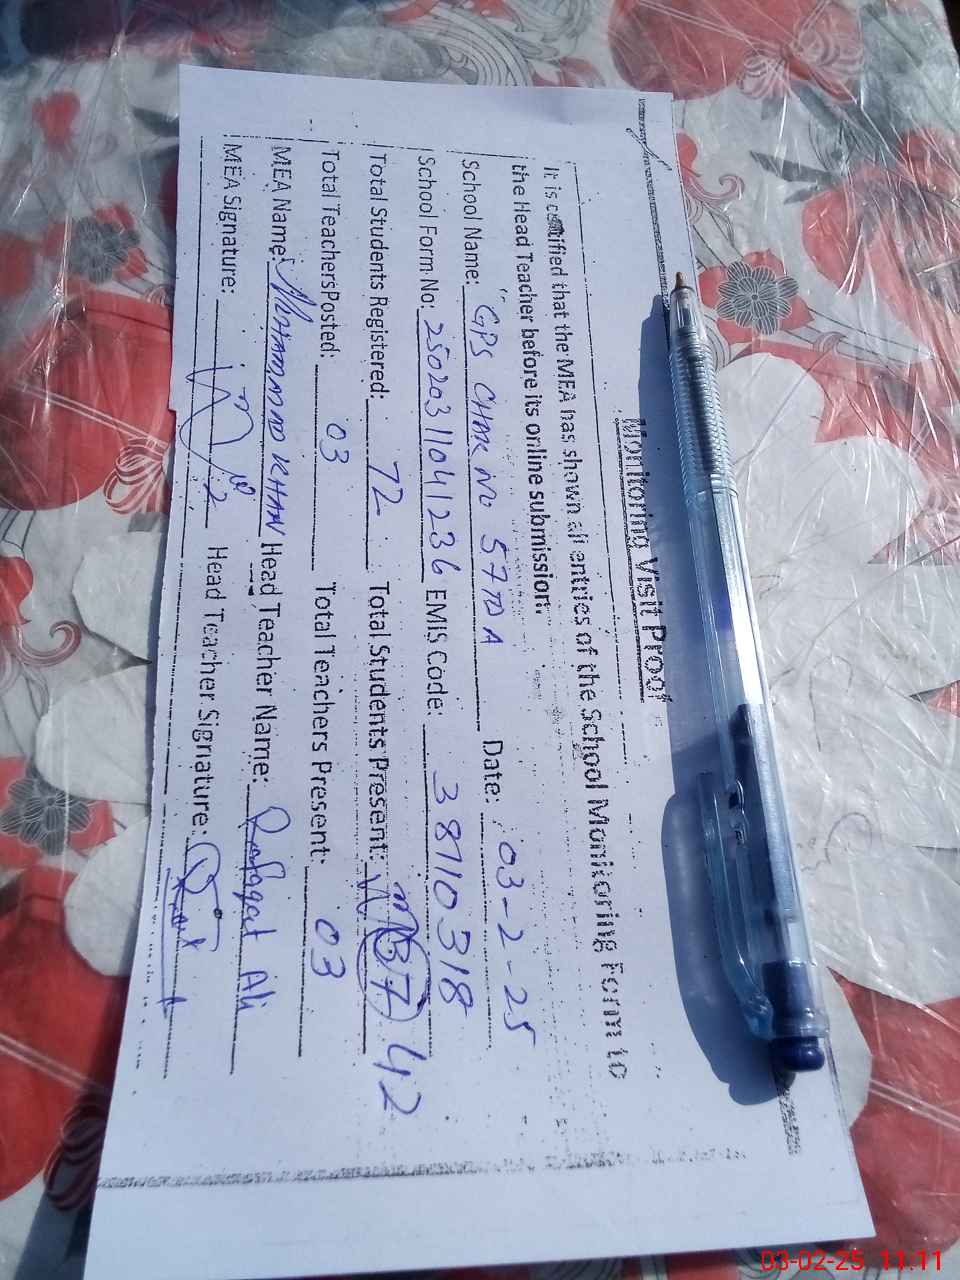 Monitoring Visit Proof
It is certified that the MEA has shown all entries of the School Monitoring Form to
the Head Teacher before its online submission.
School Name: GPS CHAK NO 57TDA Date: 03-2-25
School Form No: 25020311041236 EMIS Code: 38710318
Total Students Registered: 72 Total Students Present: 37 42
Total TeachersPosted: 03 Total Teachers Present: 03
MEA Name: MUHAMMAD KHAN Head Teacher Name: Rafaqat Ali
MEA Signature: Head Teacher Signature:
03-02-25 11:11